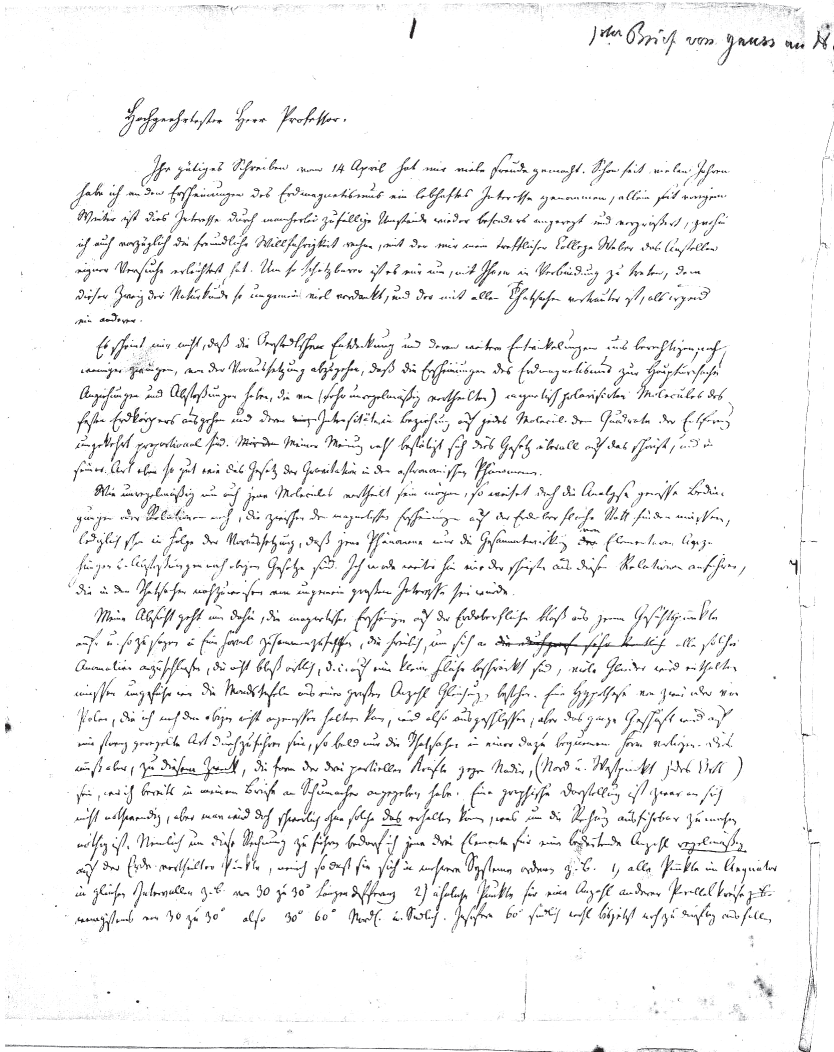 1
1ster Brief von Gauss an H.
Hochgeehrtester Herr Professor.
Ihr gütiges Schreiben vom 14 April hat mir viele Freude gemacht. Schon seit vielen Jahren
habe ich an den Erscheinungen des Erdmagnetismus ein lebhaftes Interesse genommen, allein seit vorigem
Winter ist dies Interesse durch mancherlei zufällige Umstände wieder besonders angeregt und vergrößert,
ich auch vorzüglich die freundliche Willfährigkeit rechne, mit der mir mein trefflicher College Weber das Anstellen
eigner Versuche erleichtert hat. Um so schätzbarer ist es mir nun, mit Ihnen in Verbindung zu treten, dem
dieser Zweig der Naturkunde so ungemein viel verdankt, und der mit allen Thatsachen vertrauter ist, als irgend
ein anderer.
Es scheint mir nicht, daß die Oerstedtsche Entdeckung und deren weitere Entwickelungen uns berechtigen, noch
weniger zwingen, von der Voraussetzung abzugehen, daß die Erscheinungen des Erdmagnetismus zur Hauptursache
Anziehungen und Abstoßungen haben, die von (sehr unregelmäßig vertheilten) magnetisch polarisirten Moleculen des
festen Erdkörpers ausgehen und deren Intensitäten in beziehung auf jedes Molecul dem Quadrate der Entfernung
umgekehrt proportional sind. Meiner Meinung nach bestätigt sich dies Gesetz überall auf das schönste, und in
seiner Art eben so gut wie das Gesetz der Gravitation in den astronomischen Phänomenen.
Wie unregelmäßig nun auch jene Molecules vertheilt sein mögen, so weiset doch die Analyse gewisse Bedin-
gungen oder Relationen nach, die zwischen den magnetischen Erscheinungen auf der Erdoberfläche Statt finden müssen,
lediglich schon in Folge der Voraussetzung, daß jene Phänomene nur die Gesammtwirkung von Elementaren Anzie-
hungen u. Abstoßungen nach obigem Gesetze sind. Ich werde weiterhin eine der schönsten aus diesen Relationen anführen,
die in den Thatsachen nachzuweisen von ungemein großem Interesse sein würde.
Meine Absicht geht nun dahin, die magnetischen Erscheinungen auf der Erdoberfläche bloß aus jenem Gesichtspunkte
u. so zu sagen in Eine Formel zusammenzufassen, die freilich, um sich an alle solche
Anomalien anzuschließen, die nicht bloß örtlich, d.i. auf eine kleine Fläche beschränkt sind, viele Glieder wird enthalten
müssen ungefähr wie die Mondstafeln aus einer großen Anzahl Gleichungen bestehen. Eine Hypothese von zwei oder vier
Polen, die ich nach dem obigen nicht angemessen halten kann, wird also ausgeschlossen, aber das ganze Geschäft wird auf
eine streng geregelte Art durchzuführen sein, so bald nur die Thatsachen in einer dazu bequemen Form vorliegen. Dies
muß aber, zu diesem Zweck, die Form der drei partiellen Kräfte gegen Nadir, (Nord u. Westpunkt jedes Orts)
sein, wie ich bereits in meinem Briefe an Schumacher angegeben habe. Eine graphische Darstellung ist zwar an sich
nicht nothwendig, aber man wird doch schwerlich ohne solche das erhalten können, was um die Rechnung ausführbar zu machen
nöthig ist. Nemlich um diese Rechnung zu führen bedarf ich jene drei Elemente für eine bedeutende Anzahl regelmäßig
auf der Erde vertheilter Punkte, und so daß sie sich in mehrere Systeme ordnen z.b. 1) alle Punkte im Aequator
in gleichen Intervallen z.b. von 30 zu 30° Längendifferenz 2) ähnliche Punkte für eine Anzahl anderer Parallelkreise z.b.
wenigstens von 30 zu 30° also 30° 60° Nordl. u. Südlich. Insofern 60° südlich wohl bis jetzt noch zu dürftig ausfallen